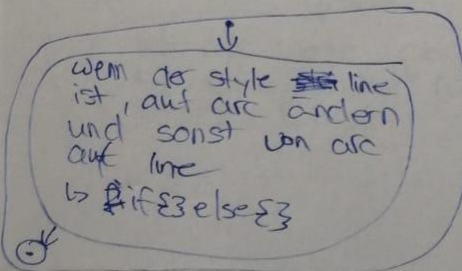 wenn der style line
ist, auf arc ändern
und sonst von arc
auf line
↳ if{}else{}